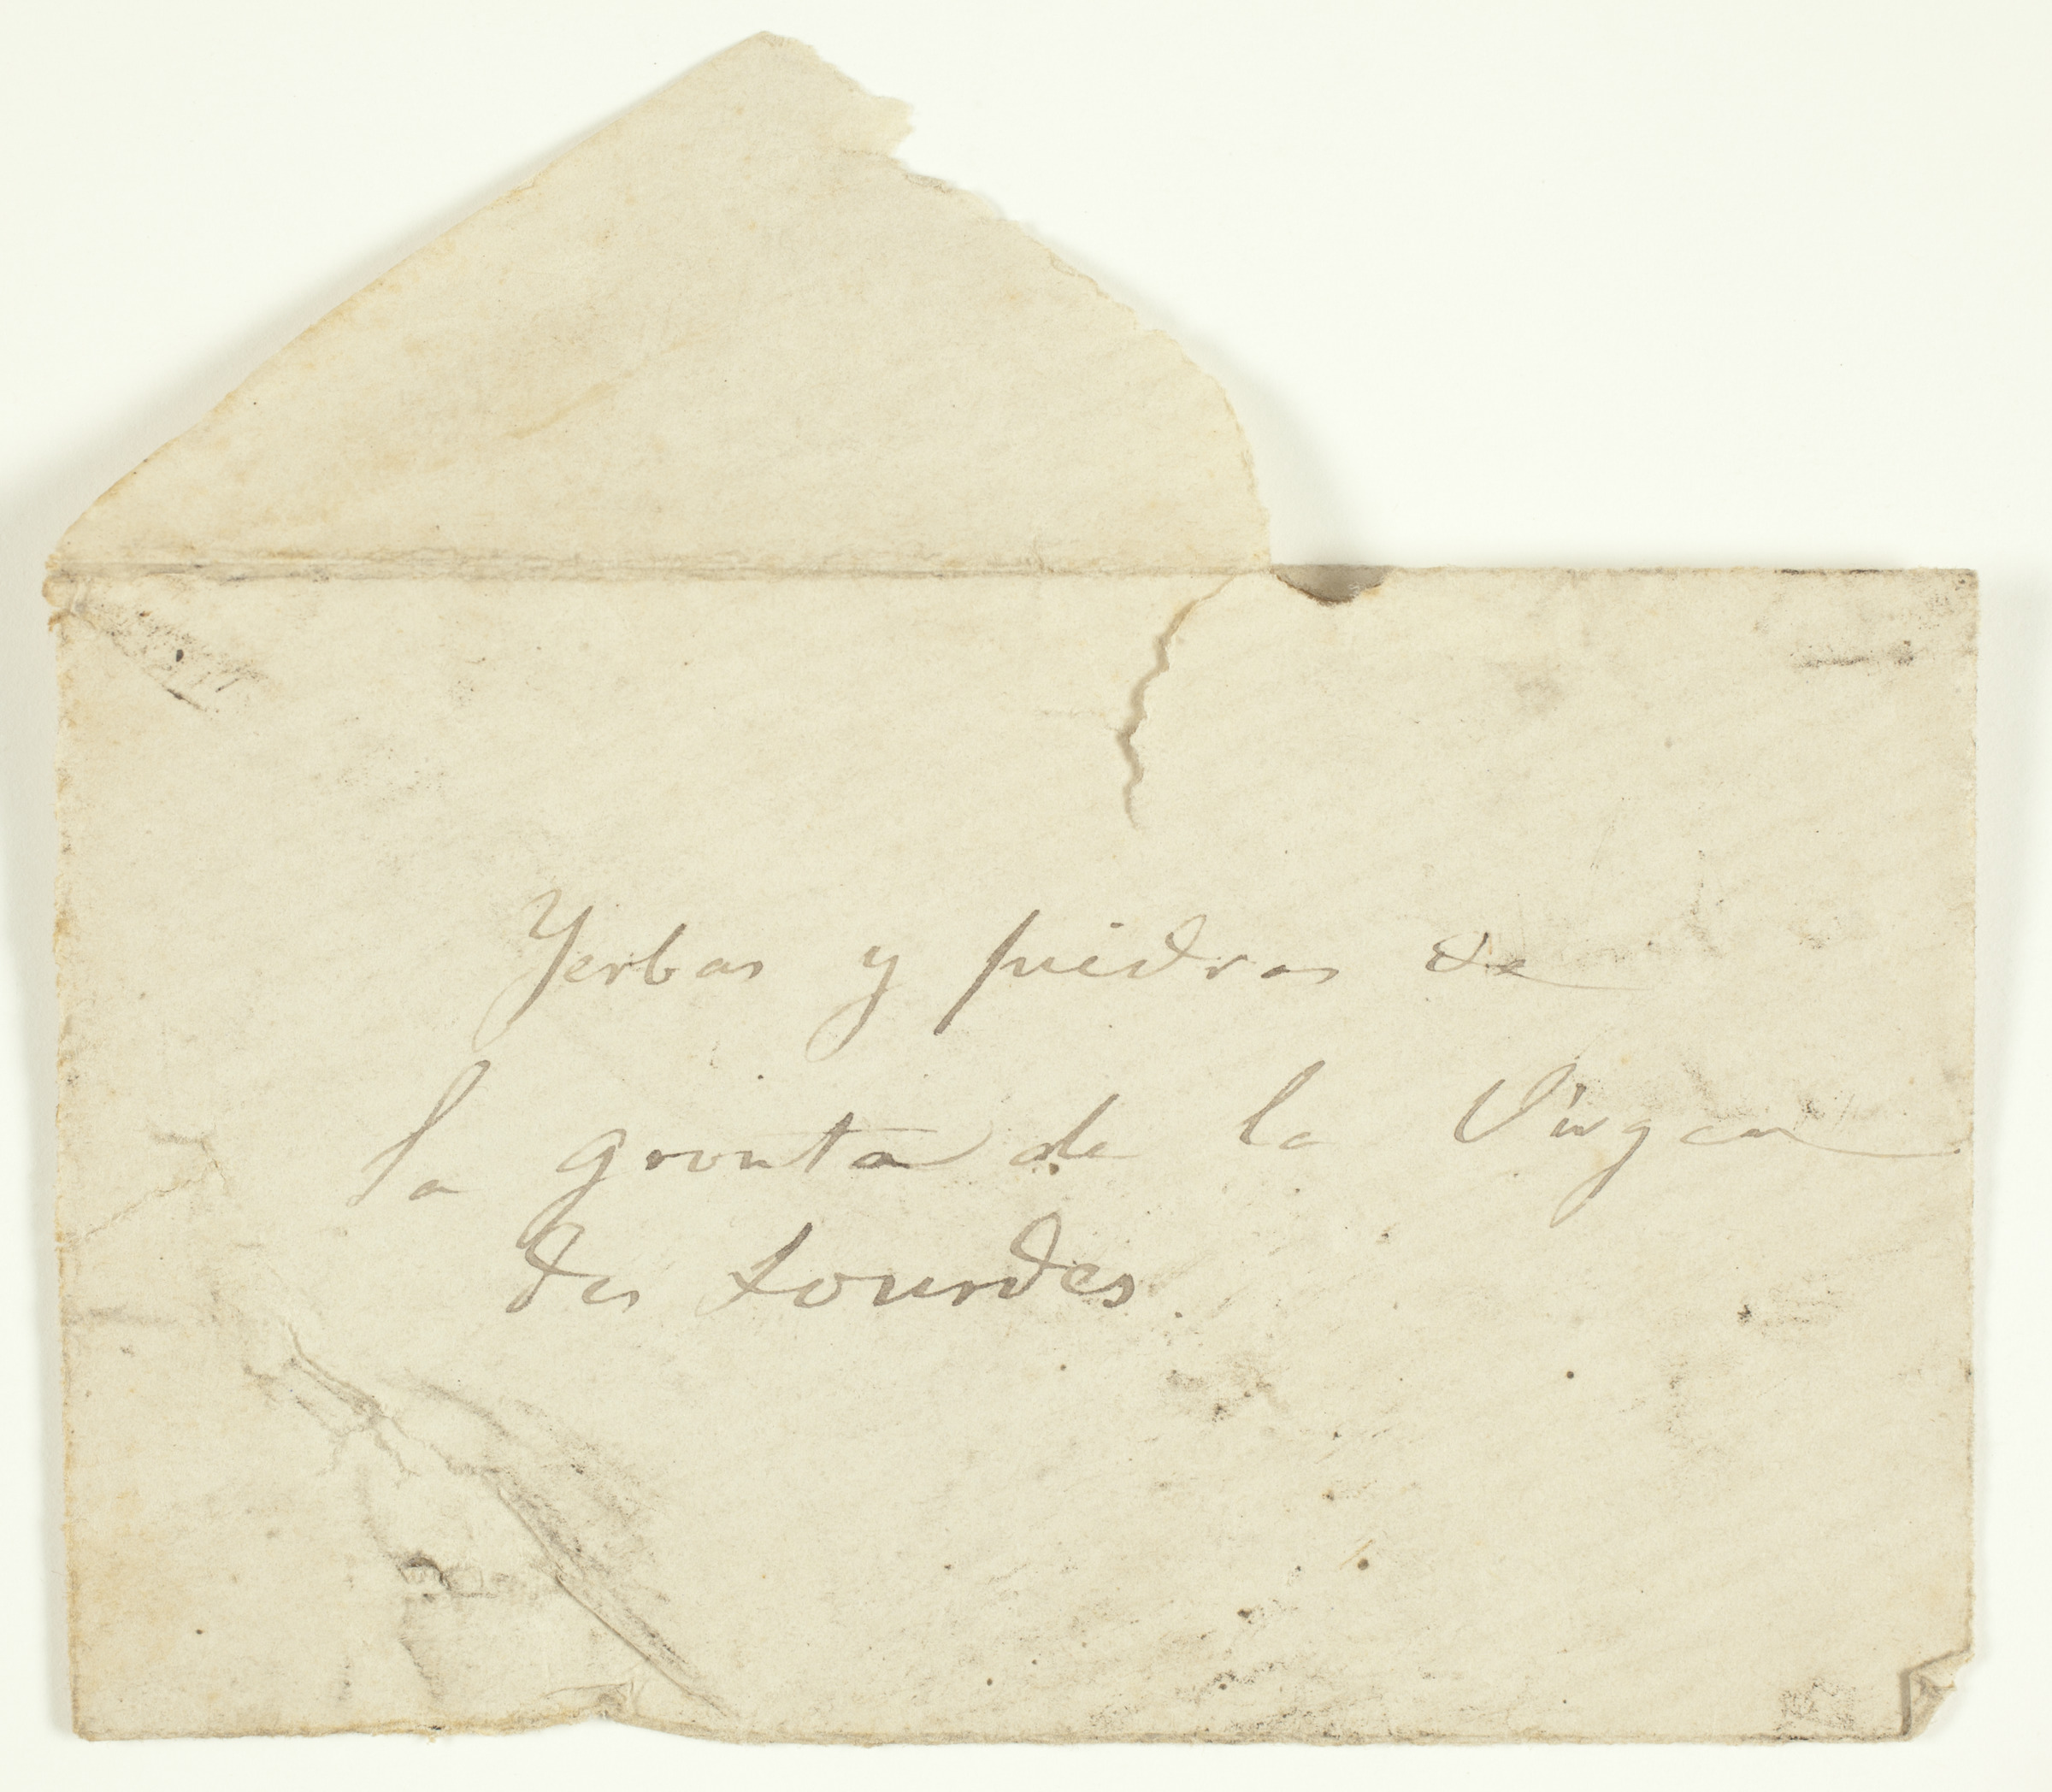 Yerbas y piedras de
la grouta de la Virgen
des Lourdes.